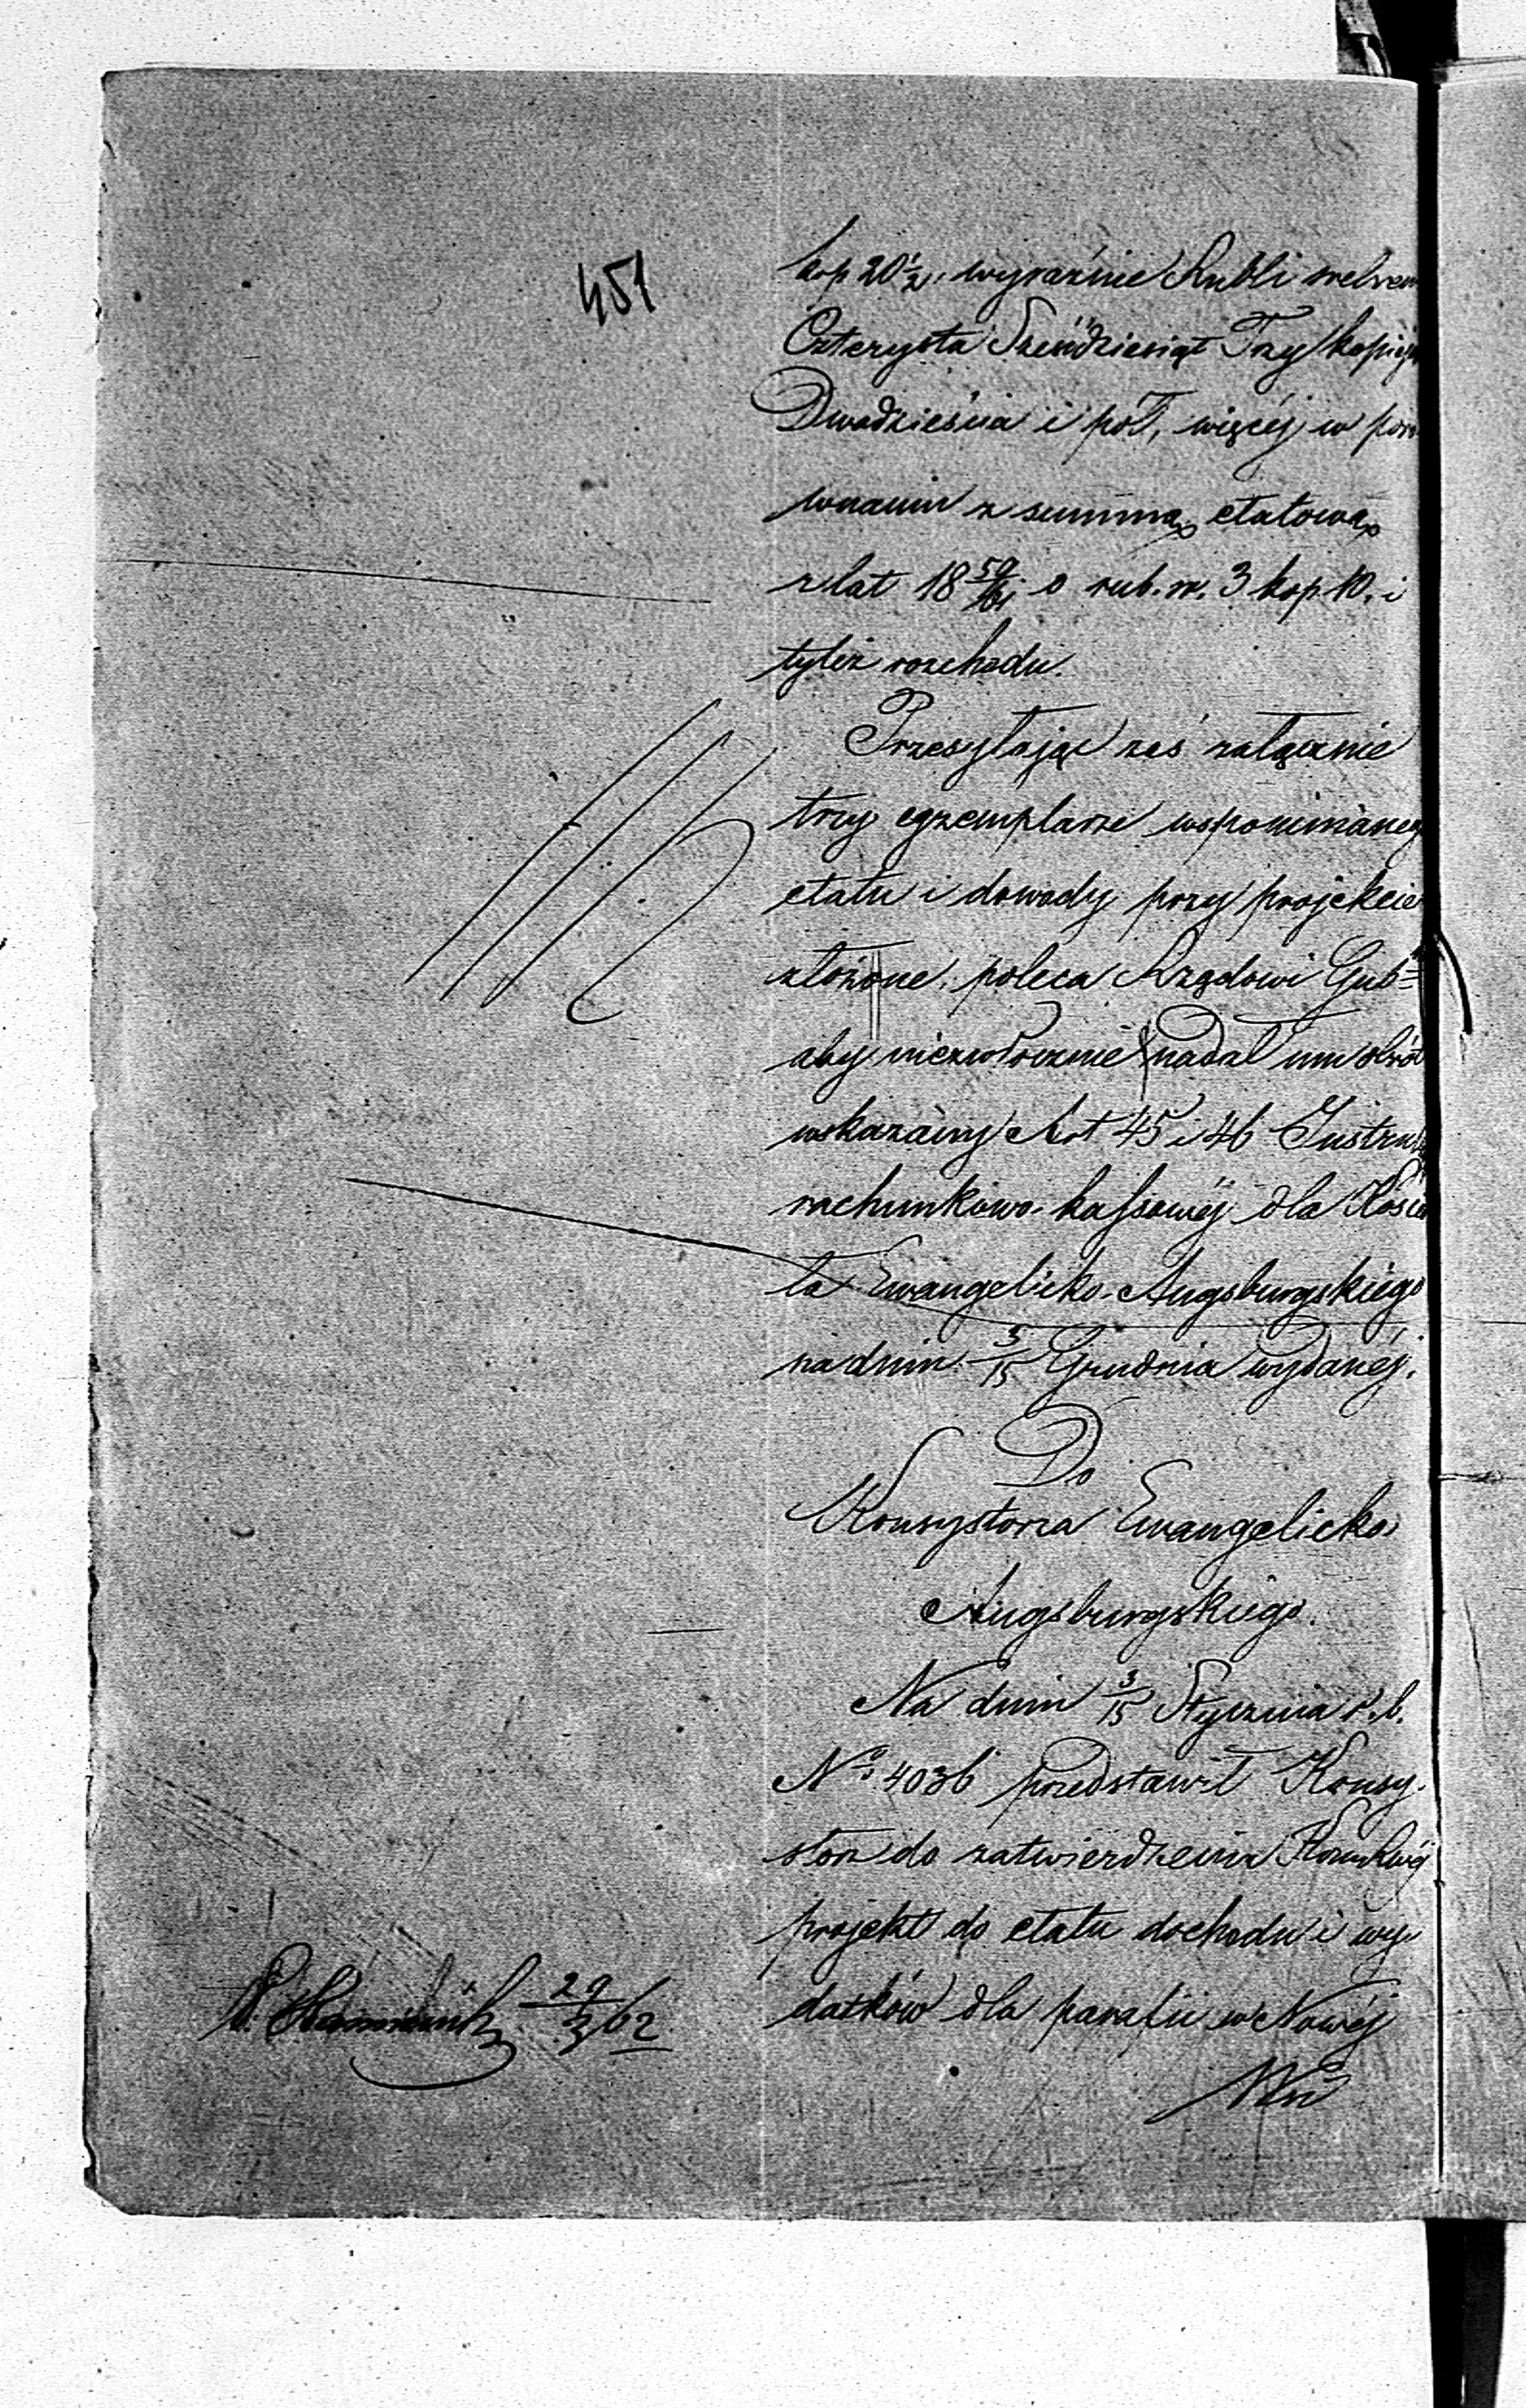 451
kop 20½. wyraźnie Rubli srebrem
Czterysta Sześćdziesiąt Trzy kopiej
Dwadzieścia i pół, więcej w poró
wnaniu z summą etatową
z lat 18 59/61 o rub. sr. 3 kop 10. i
tyleż rozchodu.
Przesyłając zaś załącznie
trzy egzemplarze wspominaneg
etatu i dowody przy projekcie
złożone, poleca Rządowi Gub
aby niezwłocznie nadał im obrót
wskazany Art 45 i 46 Instruk
rachunkowo-kassowéj dla Kościo
ła Ewangelicko-Augsburgskiego
na dniu 3/15 Grudnia wydanéj.
Do
Konsystorza Ewangelicko
Augsburgskiego.
Na dniu 3/15 Stycznia r. b.
No 4036 przedstawił Konsy-
storz do zatwierdzenia
projekt do etatu dochodu i wy
datków dla parafii w Nowéj
29/3 62